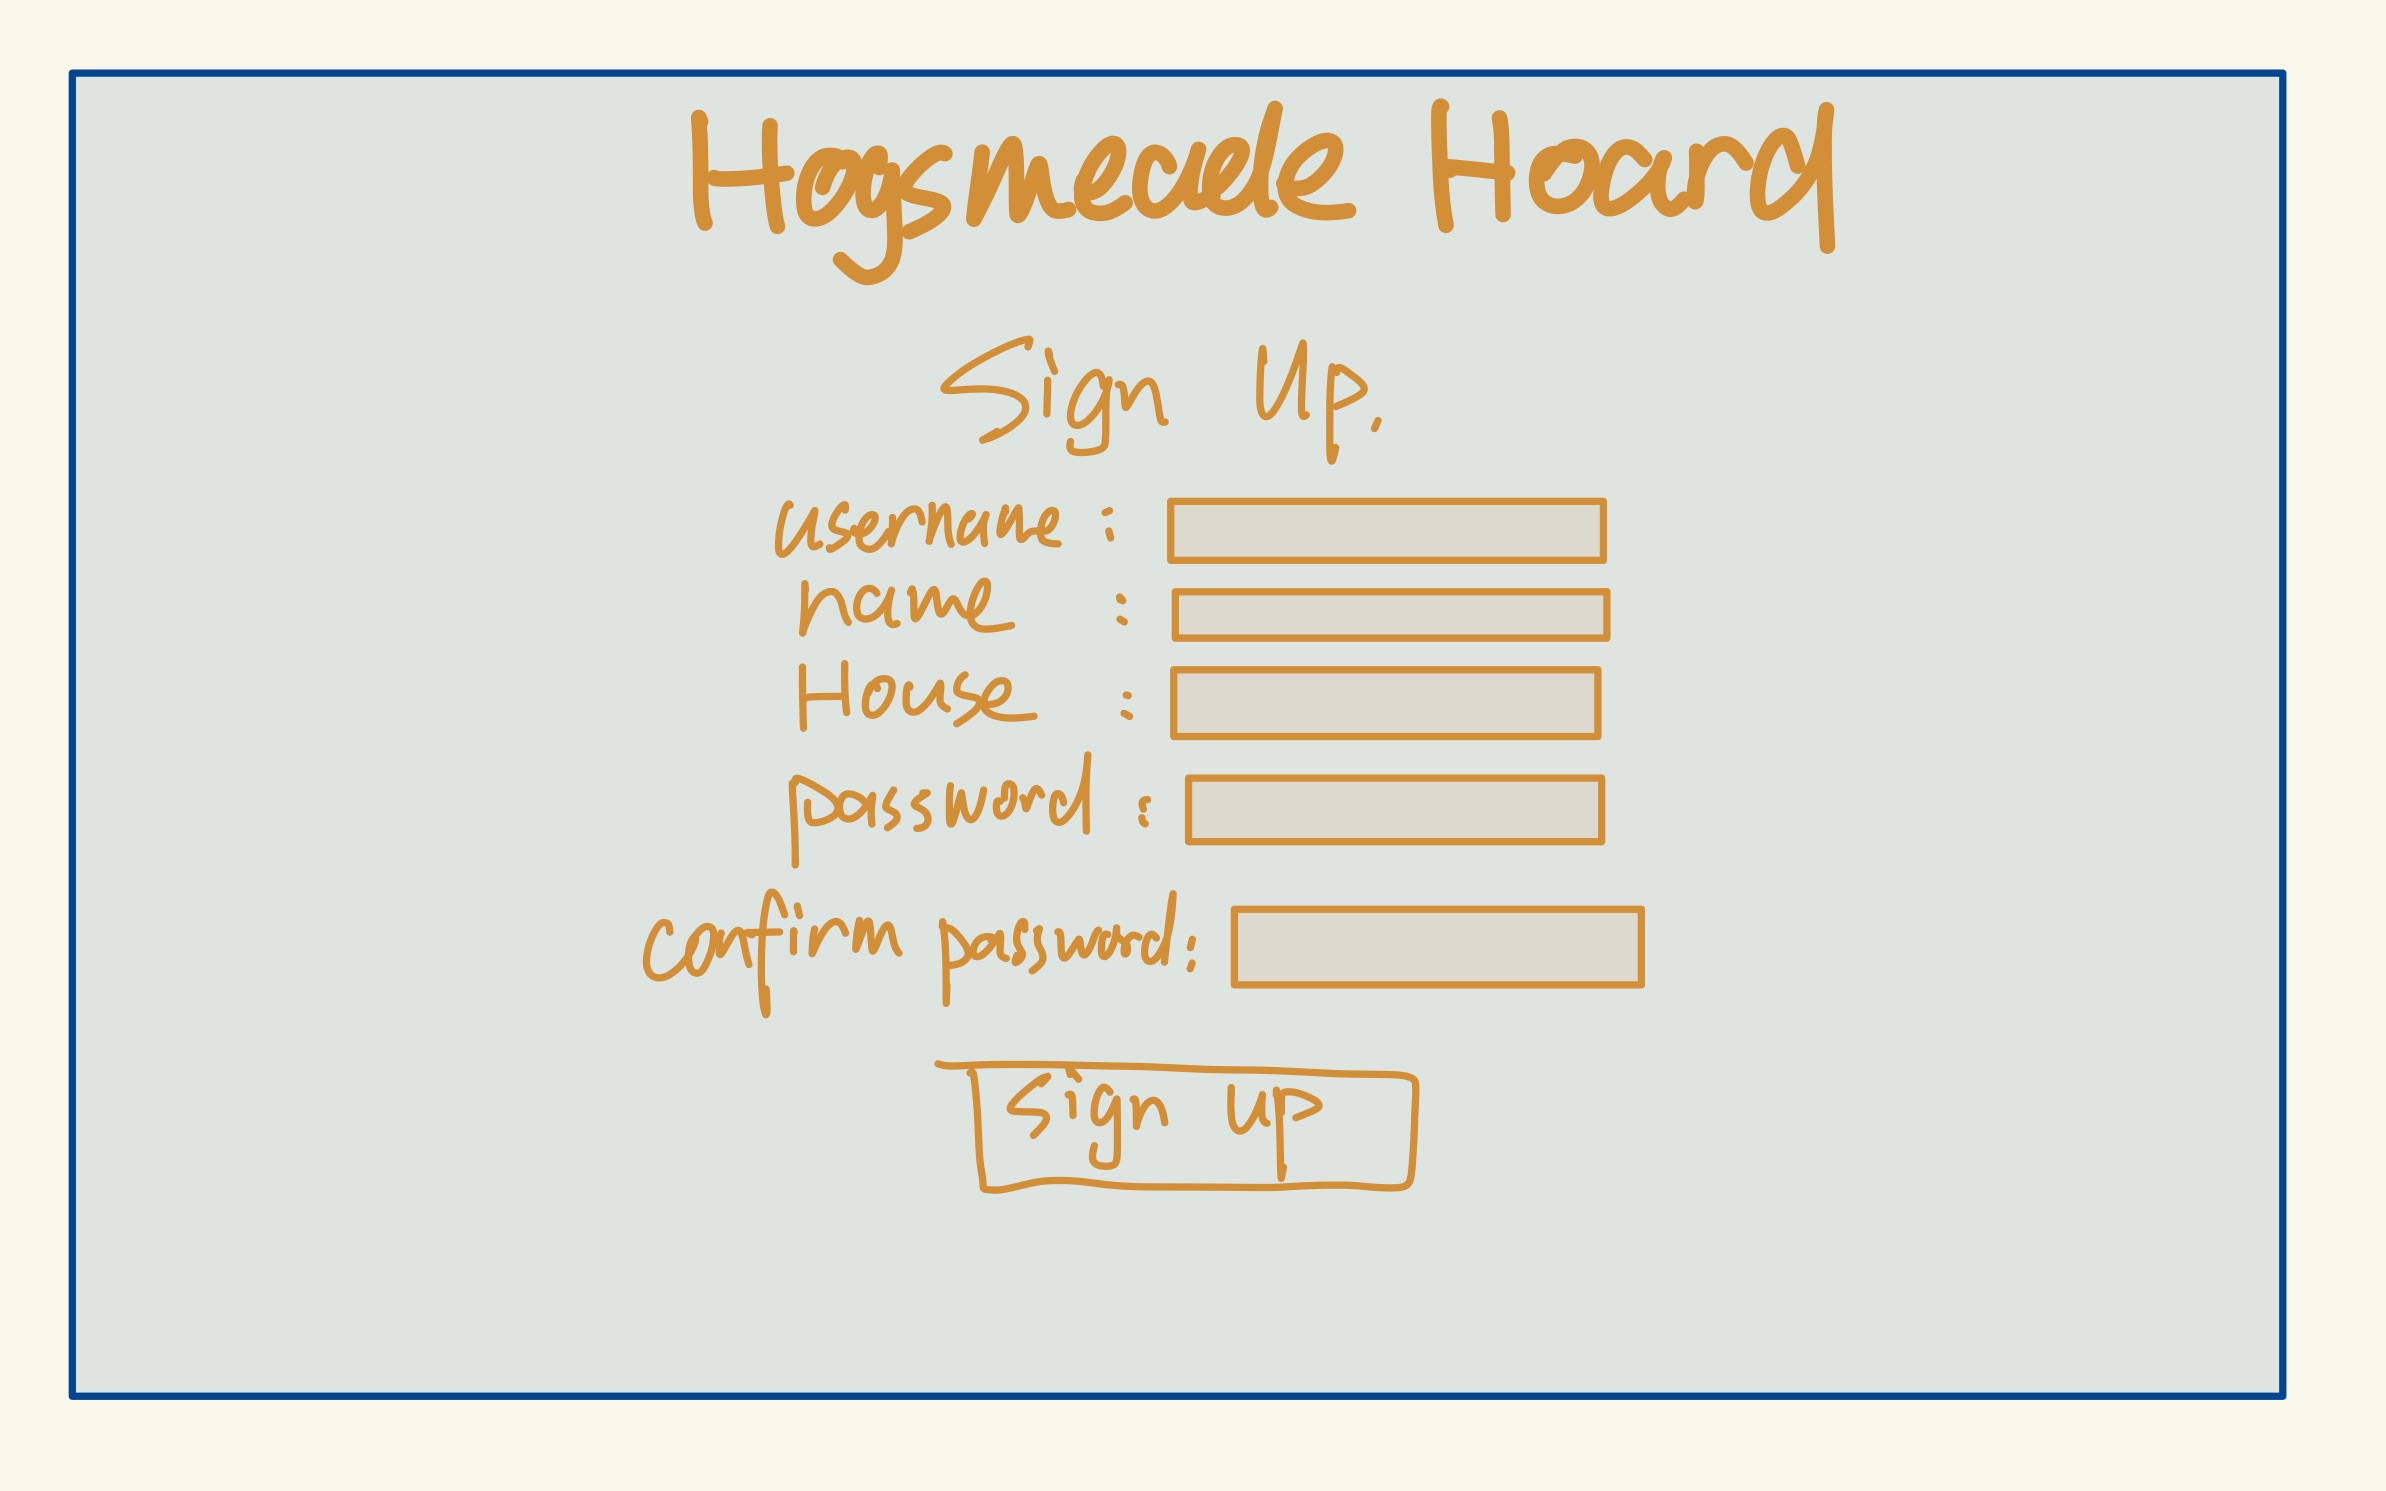 Hogsmeade Hoard
Sign Up.
username :
name :
House :
password :
confirm password :
Sign up